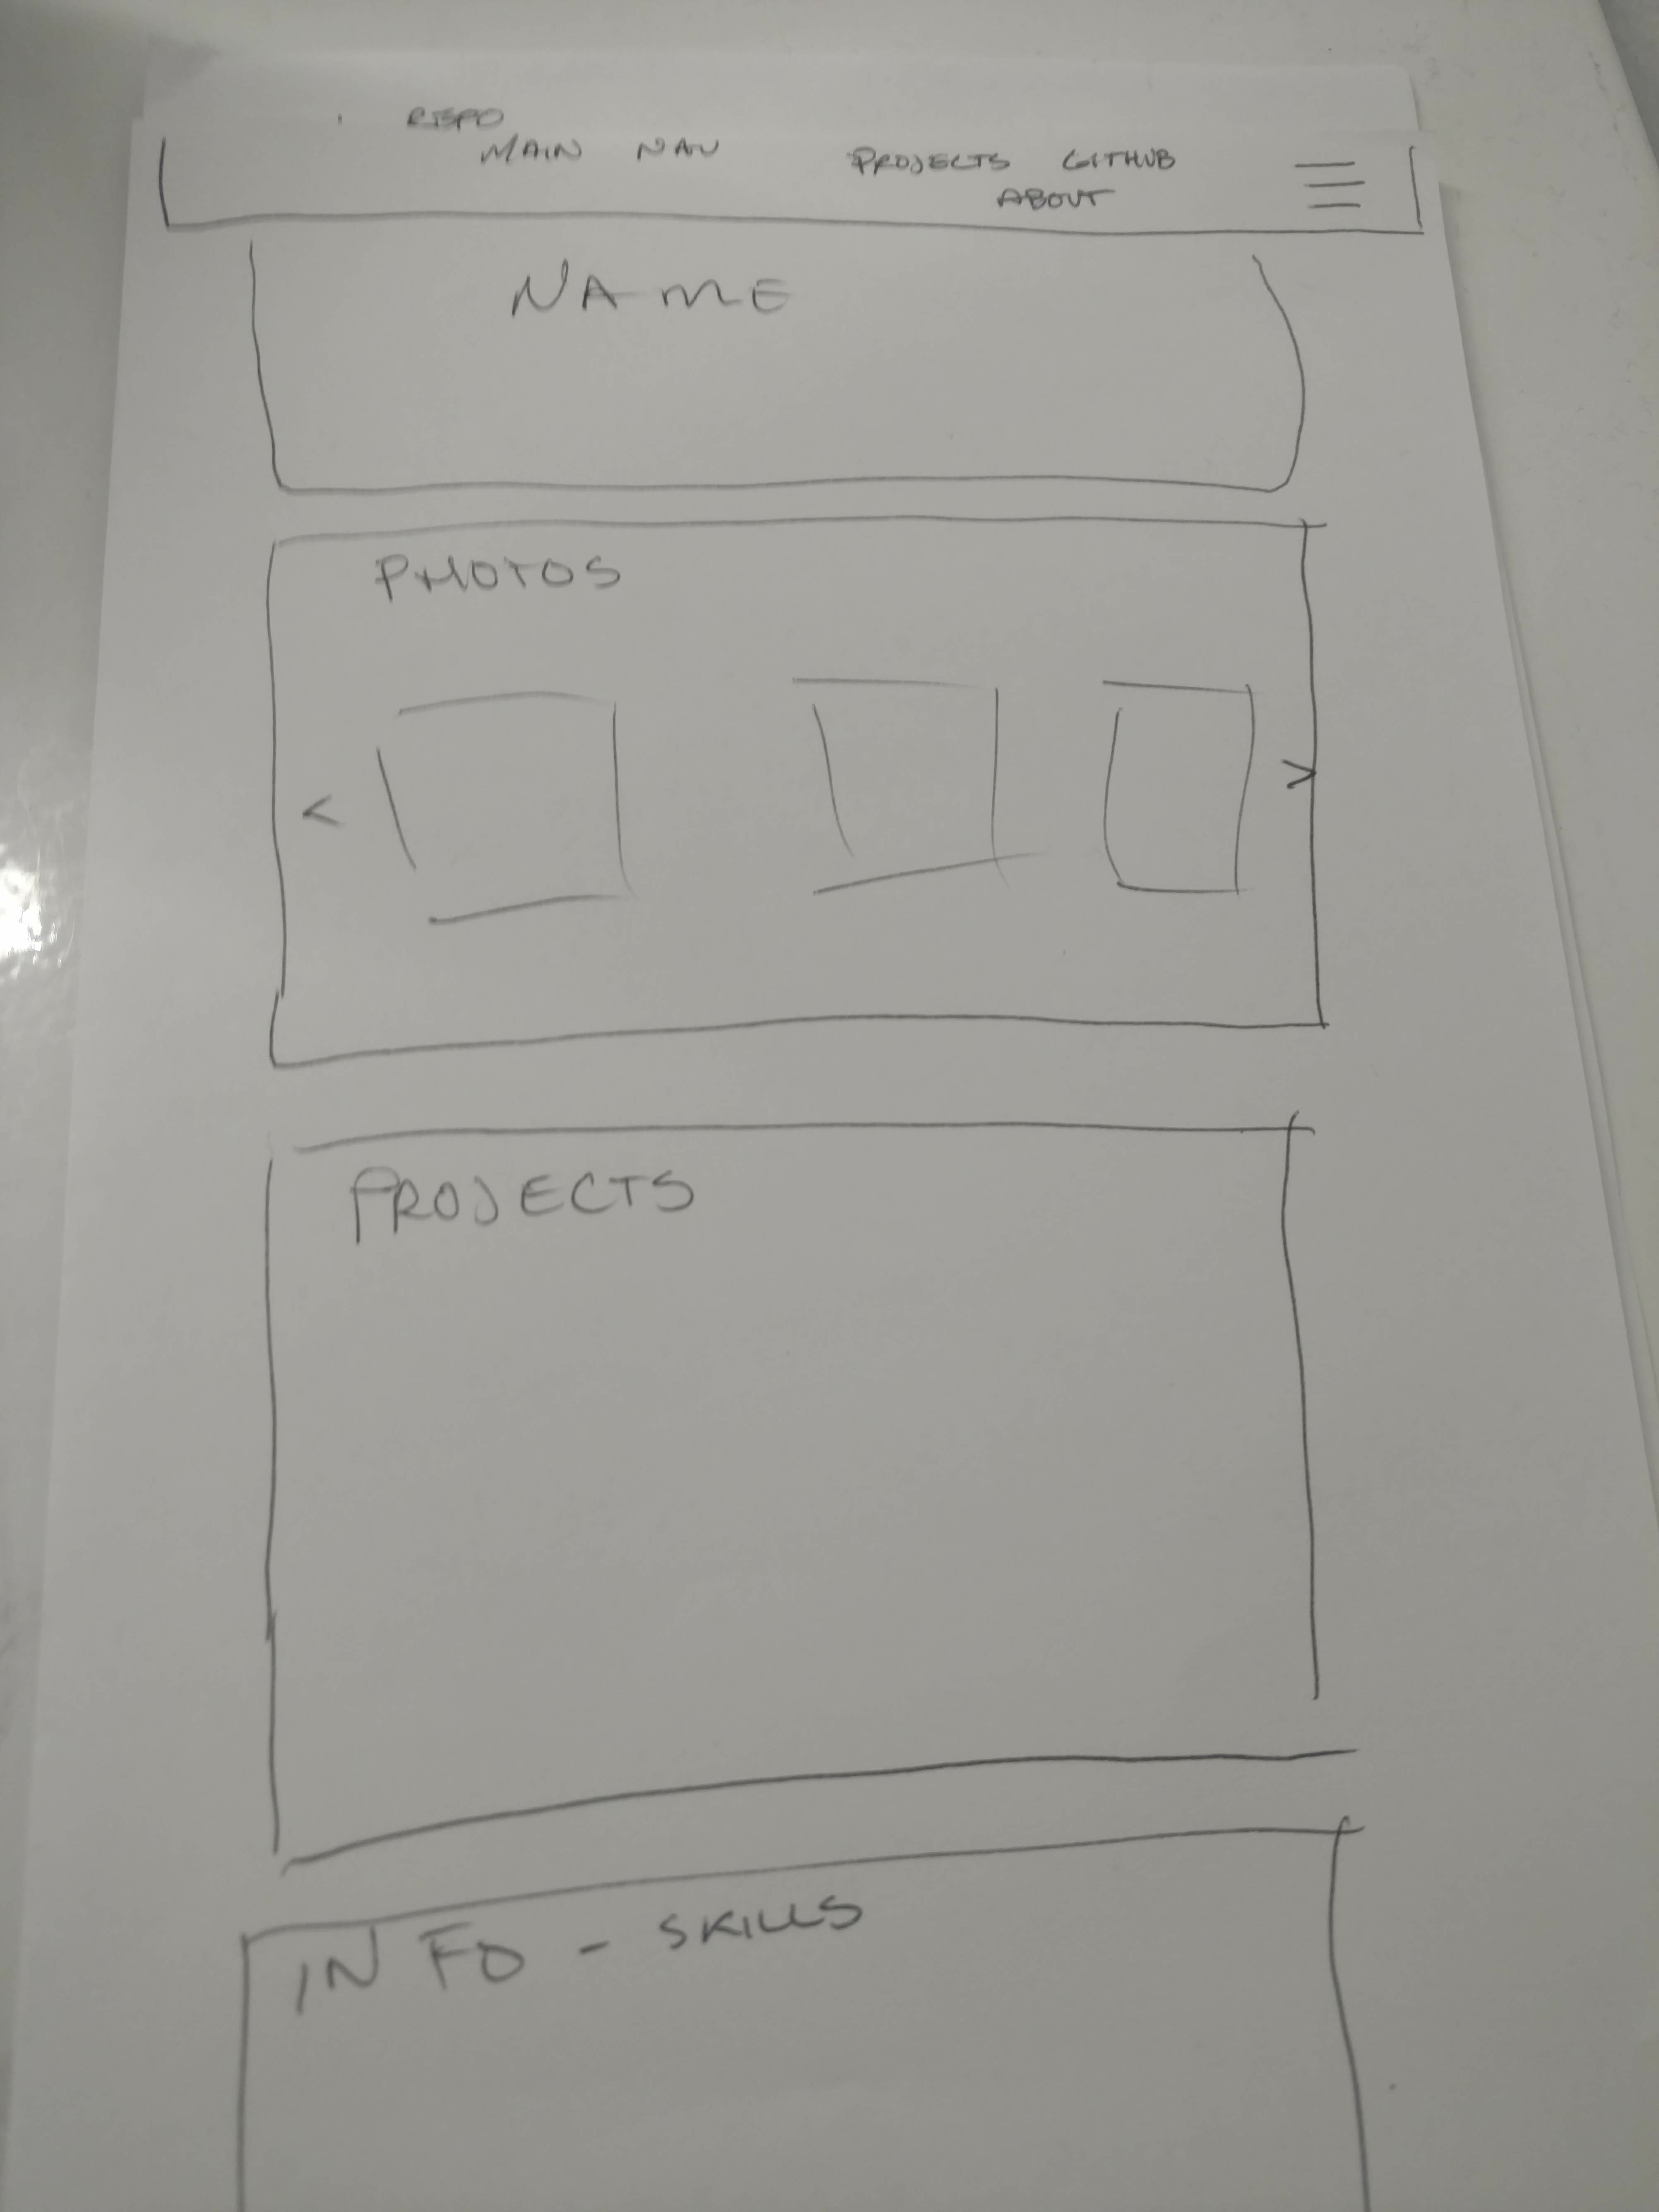 REPO
MAIN NAV
PROJECTS GITHUB
ABOUT
NAME
PHOTOS
<
>
PROJECTS
INFO - SKILLS